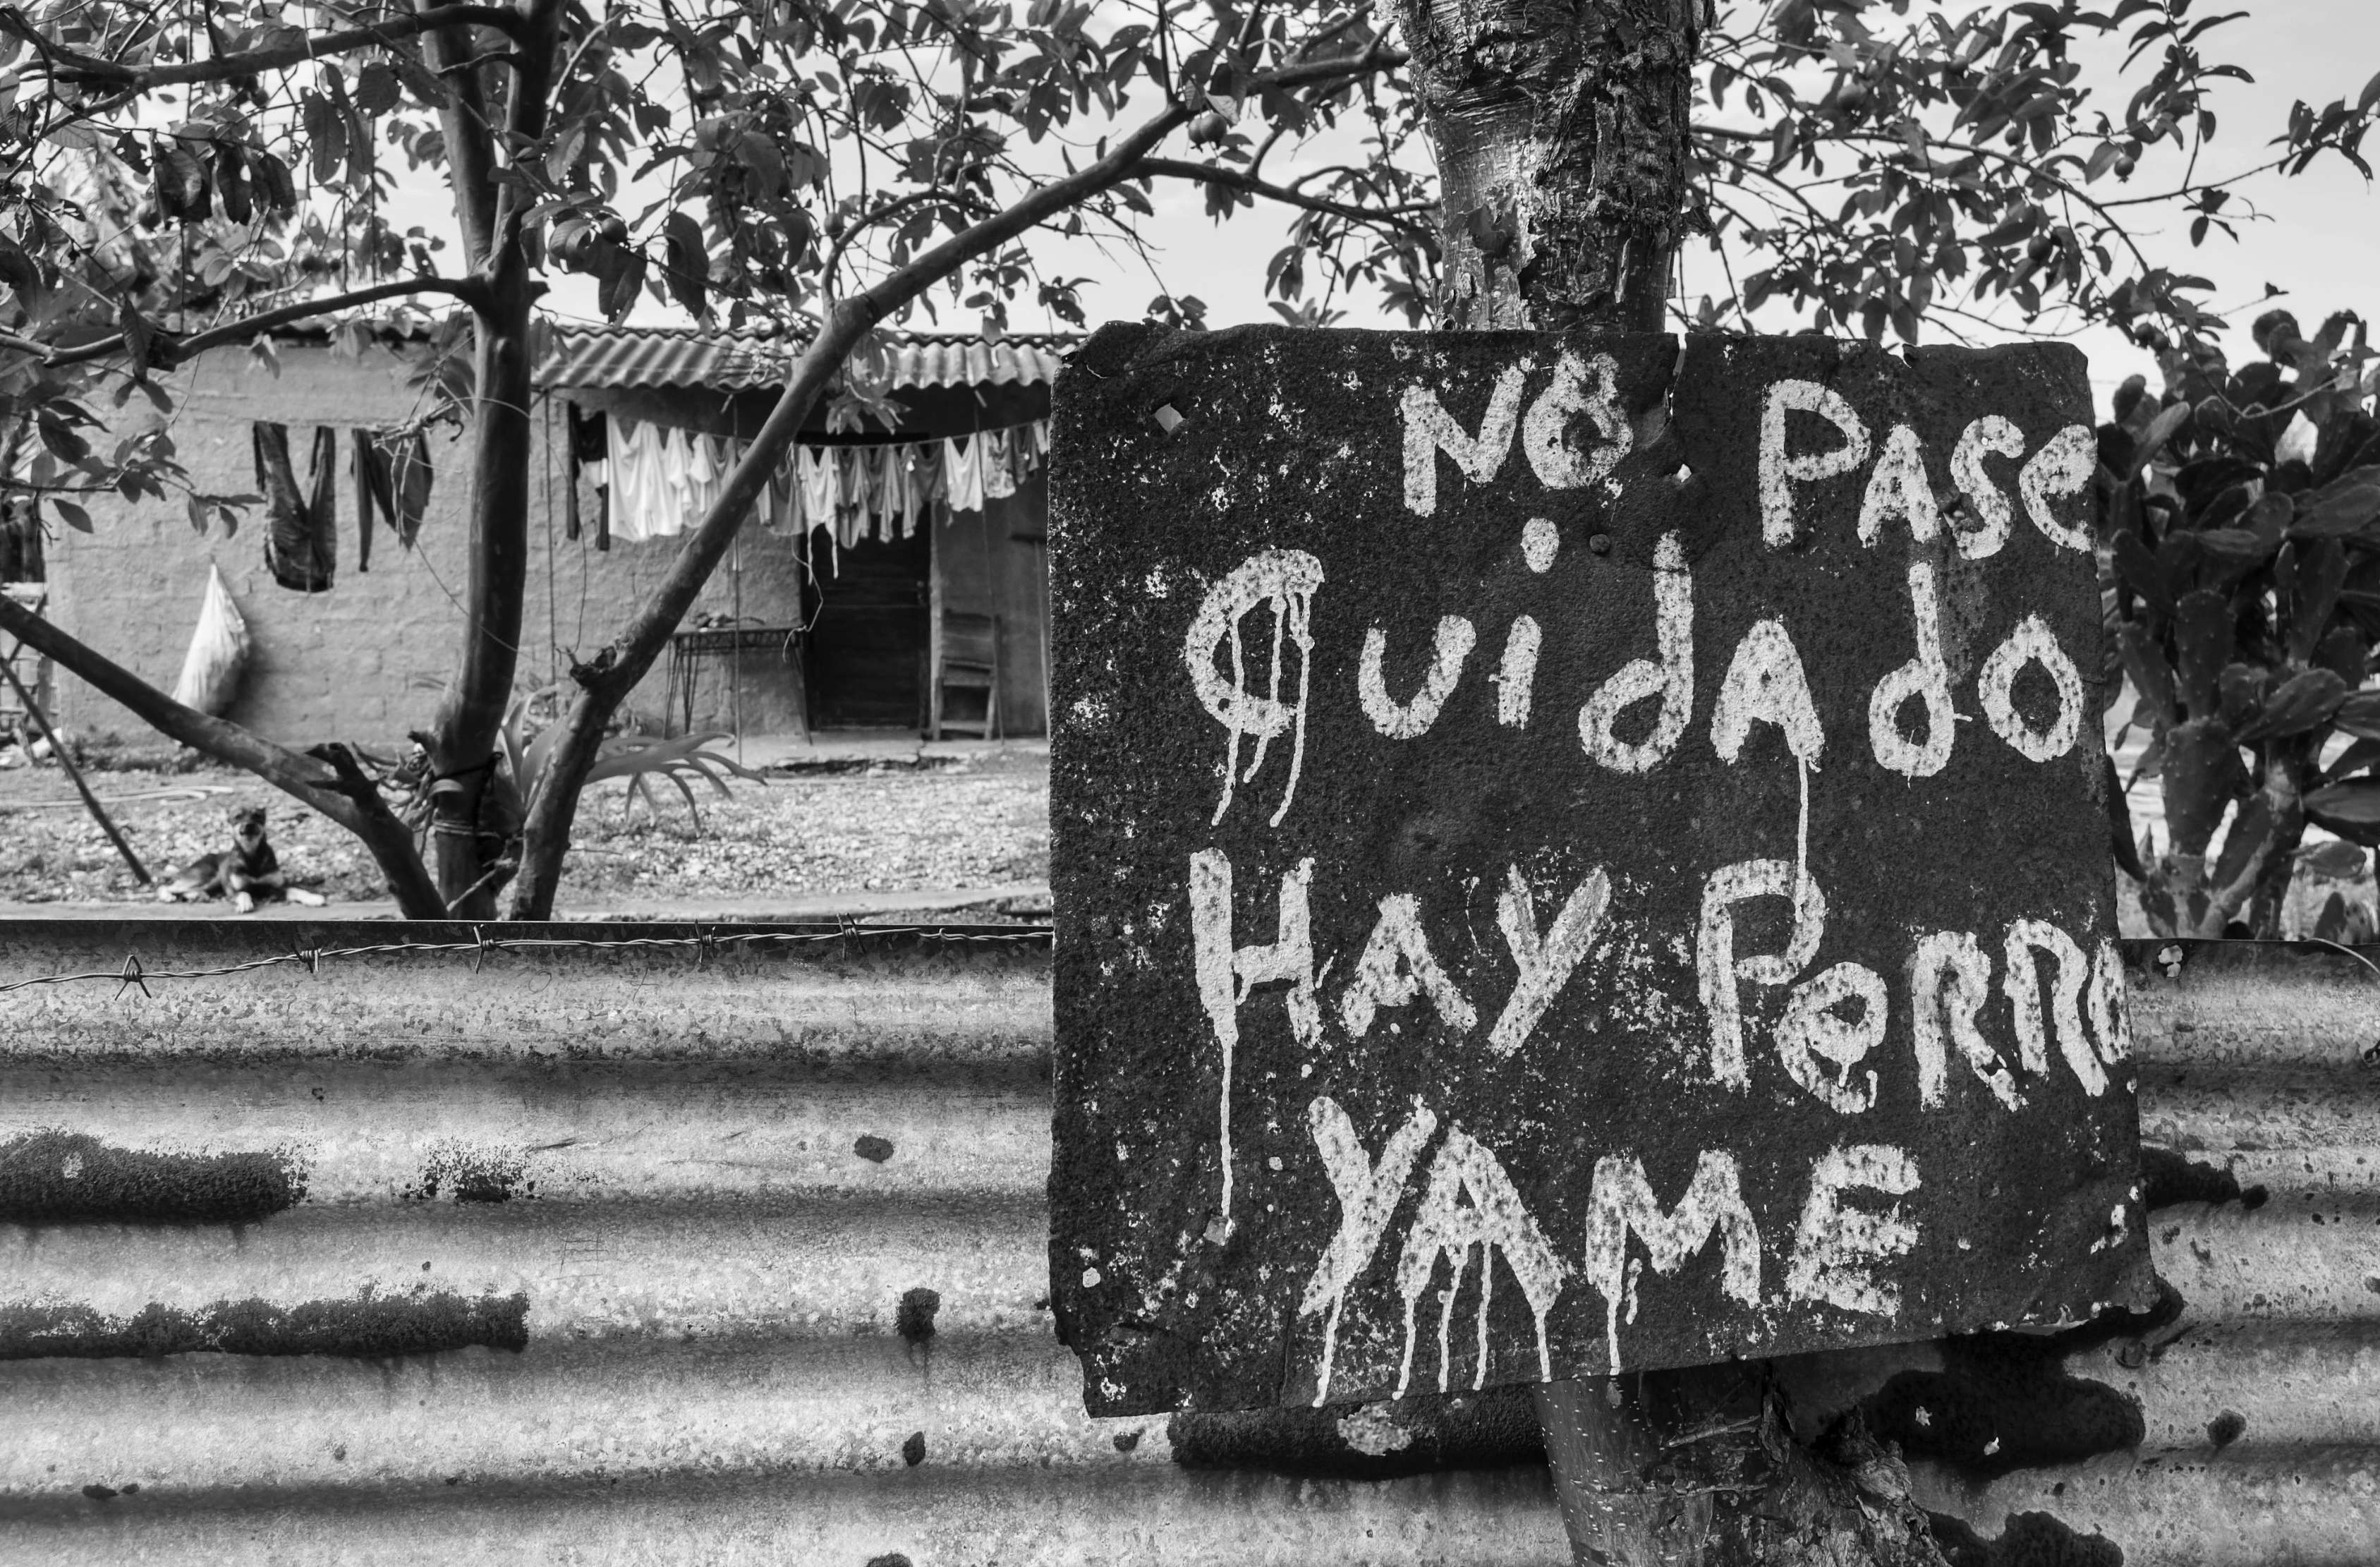 NO PASE
CuidAdo
HAY PeRRo
YAME